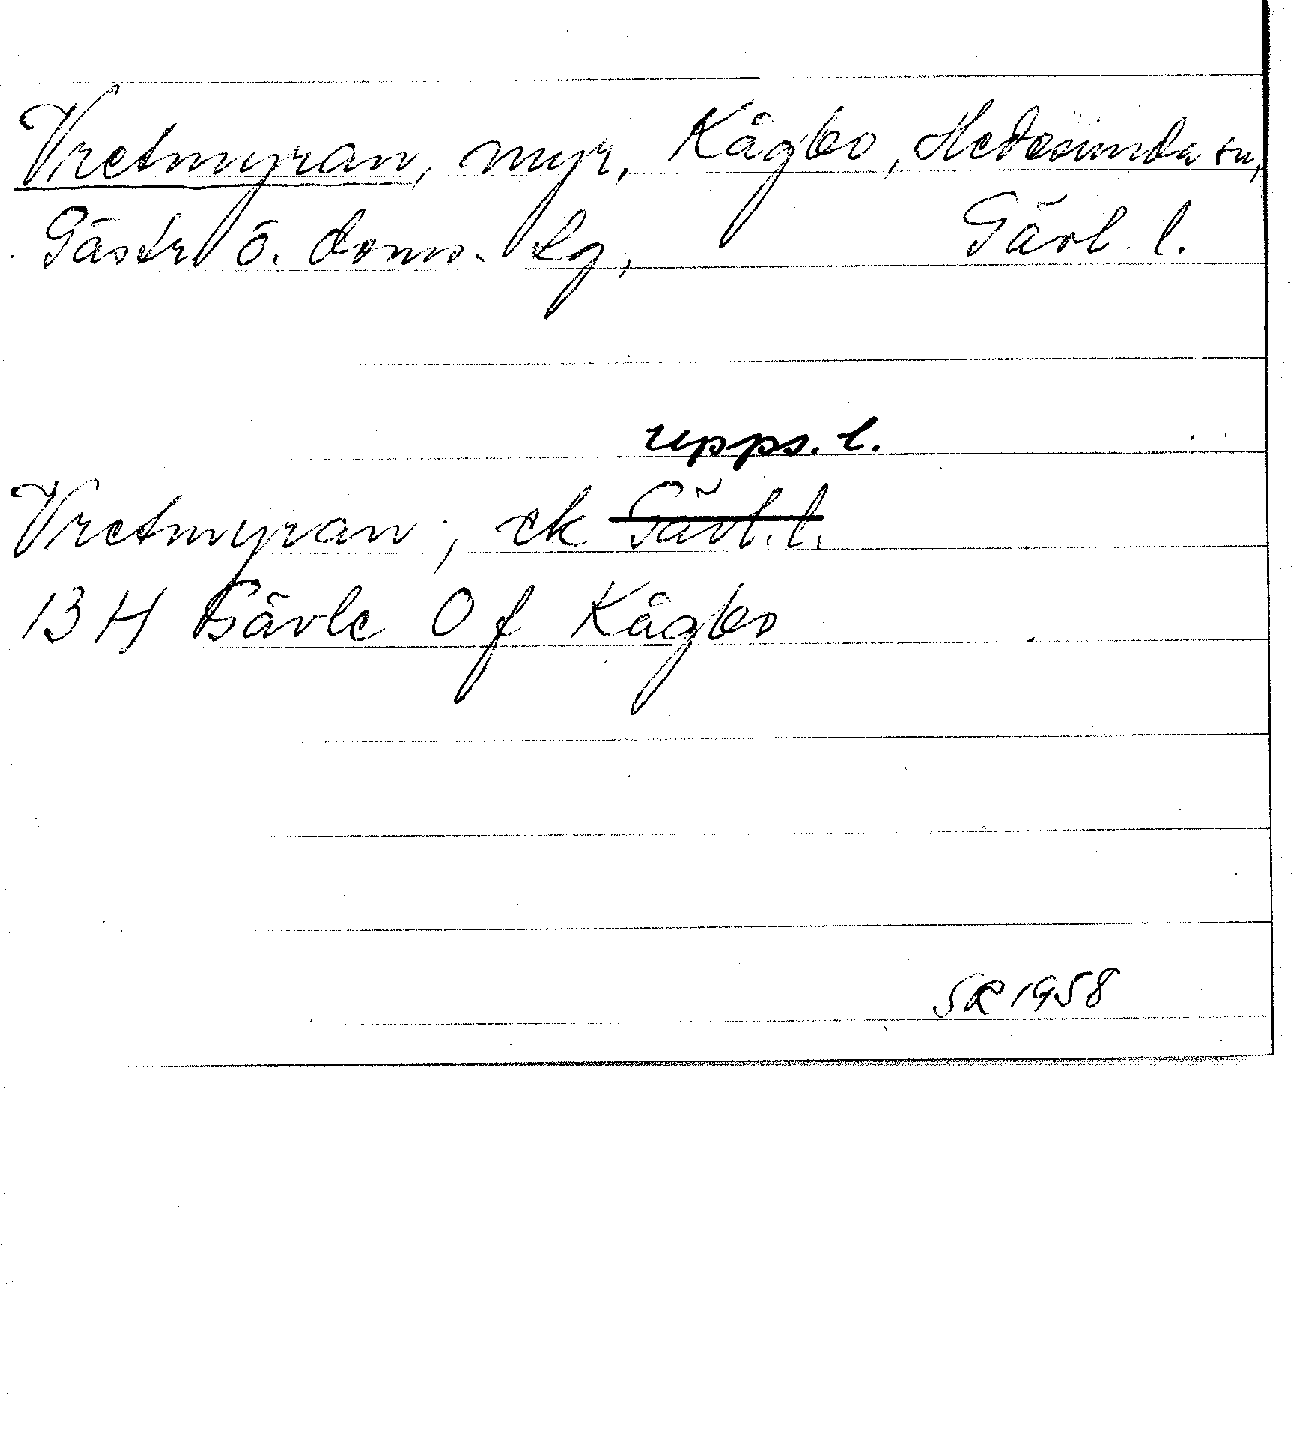 Vretmyran, myr, Kågbo, Hedesunda sn,
Gästr ö. doms. lg, Gävl. l.
Upps. l.
Vretmyran, ek Gävl. l.
13 H Gävle 0 f Kågbo
SR 1958